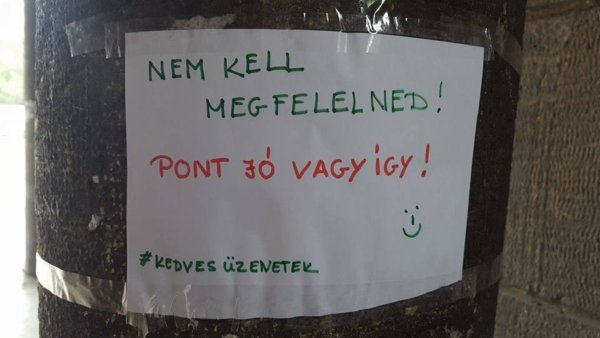 NEM KELL
MEGFELELNED!
PONT JÓ VAGY ÍGY!
#KEDVES ÜZENETEK